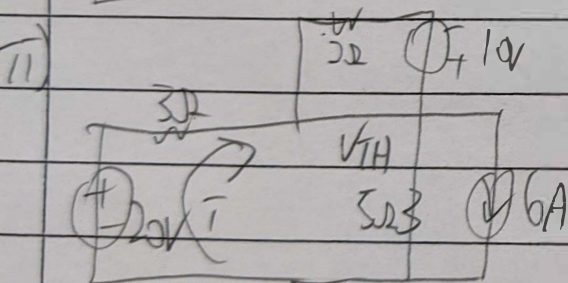 11)
2Ω
10V
3Ω
VTH
20V
I
5Ω
6A